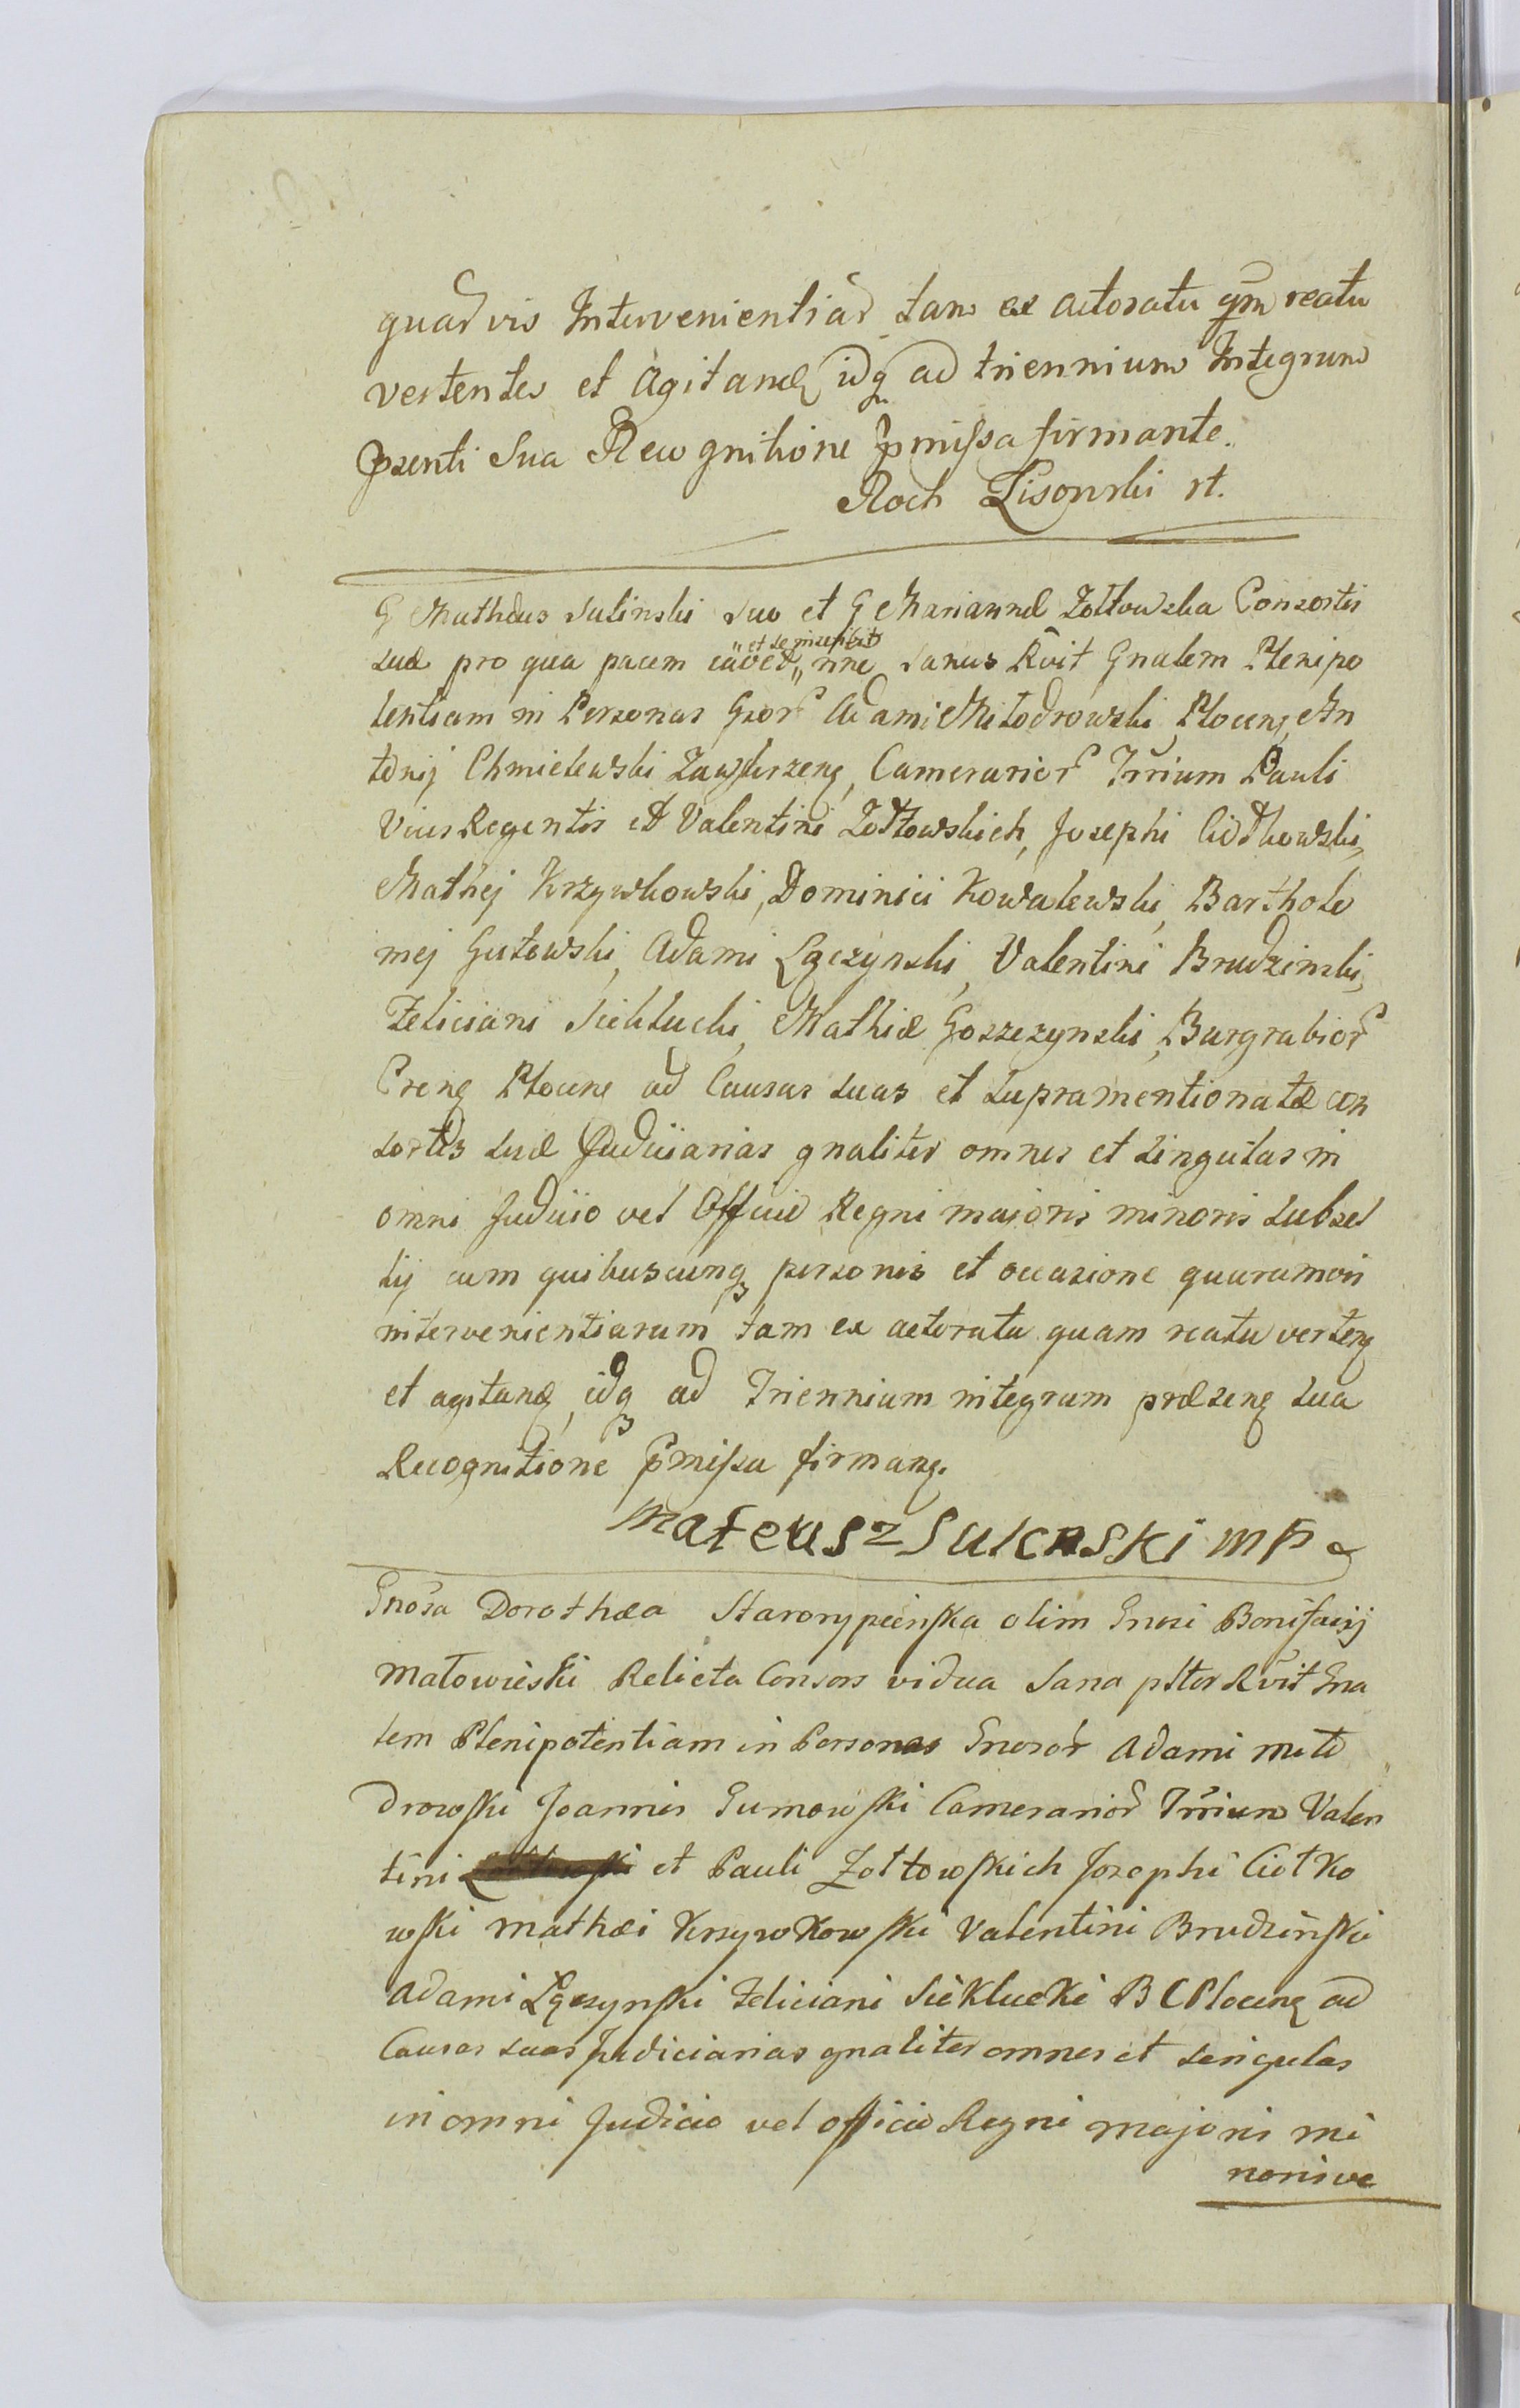 quasvis Intervenientias tam ex actoratu qm reatu
vertentes et Agitand idq ad triennium Integrum
pzenti Sua Recognitione pmissa firmante.
Roch Lisowski rt.
G Mathæus Sulinski suo et G Mariannæ Zołtowska Consortis
suæ pro qua pacem cavet „et se inscribit„ nne sanus Rvit Gnalem Plenipo
tentiam in Personas Gsor Adami Miłodrowski Plocens, An
tonij Chmielewski Zawskrzeng, Camerarior Trrium Pauli
Vices Regentis et Valentini Zołtowskich, Josephi Ciołkowski,
Mathej Krzywkowski, Dominici Kowalewski, Bartholo
mej Gutowski, Adami Łączynski, Valentini Brudzinski,
Feliciani Siekłucki, Mathiæ Goszczynski, Burgrabior
Creng Plocens ad Causas suas et supramentionatæ con
sortis suæ Judiciarias gnaliter omnes et singulas in
omni Judicio vel Officio Regni maioris minoris subsel
lij cum quibuscunq personis et occasione quarumvis
intervenientiarum tam ex actoratu quam reatu verteng
et agitand, idq ad Triennium integrum præseng sua
Recognitione pmissa firmang.
Mateusz Sulenski mp
Gnosa Dorothæa Starorypienska olim Gnosi Bonifacij
Małowieski Relicta Consors vidua sana psltor Rvit Gna
lem Plenipotentiam in Personas Gnosor Adami Miło
drowski Joannis Gumowski Camerarior Trrium Valen
tini et Pauli Zołtowskich Josephi Ciołko
wski Mathæi Krzywkowski Valentini Brudzinski
Adami Łączynski Feliciani Siekłucki B C Plocens ad
Causas suas Judiciarias gnaliter omnes et singulas
in omni Judicio vel officio Regni majoris mi
norisve